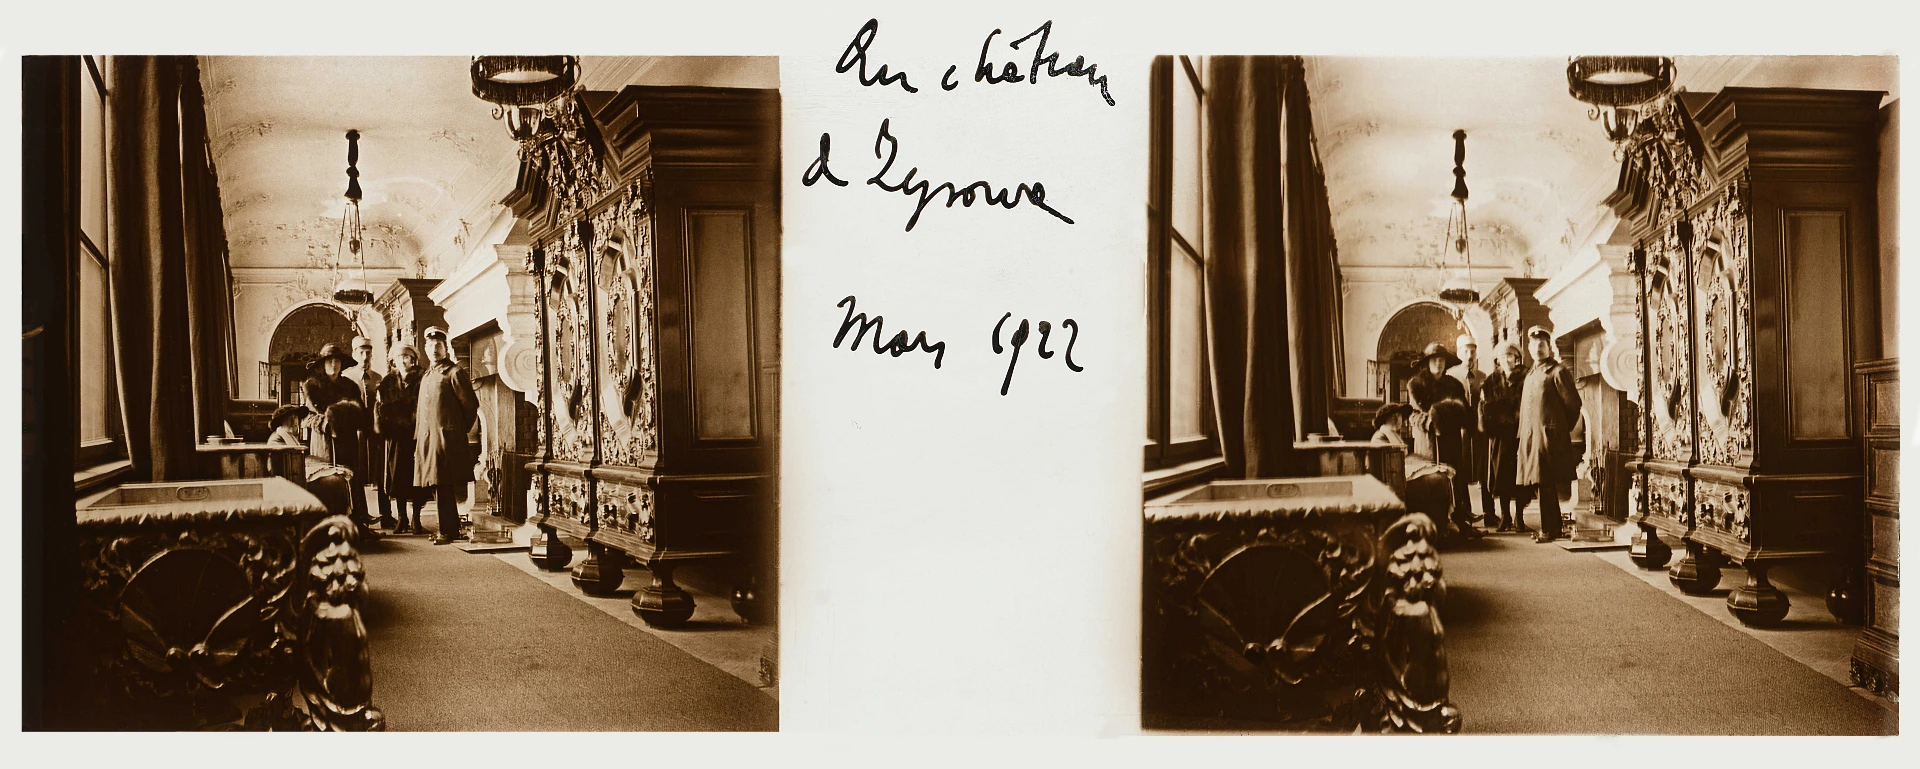 Au château
d Zyrowa
Mars 1922